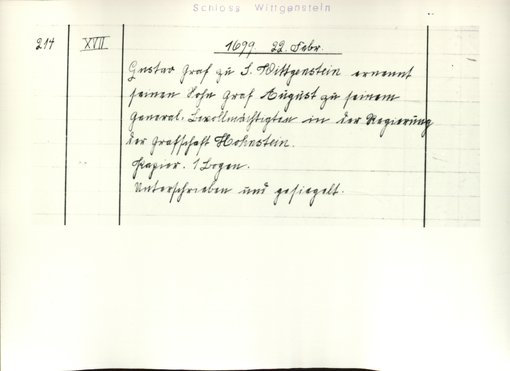 Schloss Wittgenstein
214 XVII 1699 22. Febr.
Gustav Graf zu S. Wittgenstein ernennt
seinen Sohn Graf August zu seinem
General-Bevollmächtigten in der Regierung
der Grafschaft Hohnstein.
Papier. 1 Bogen.
Unterschrieben und gesiegelt.